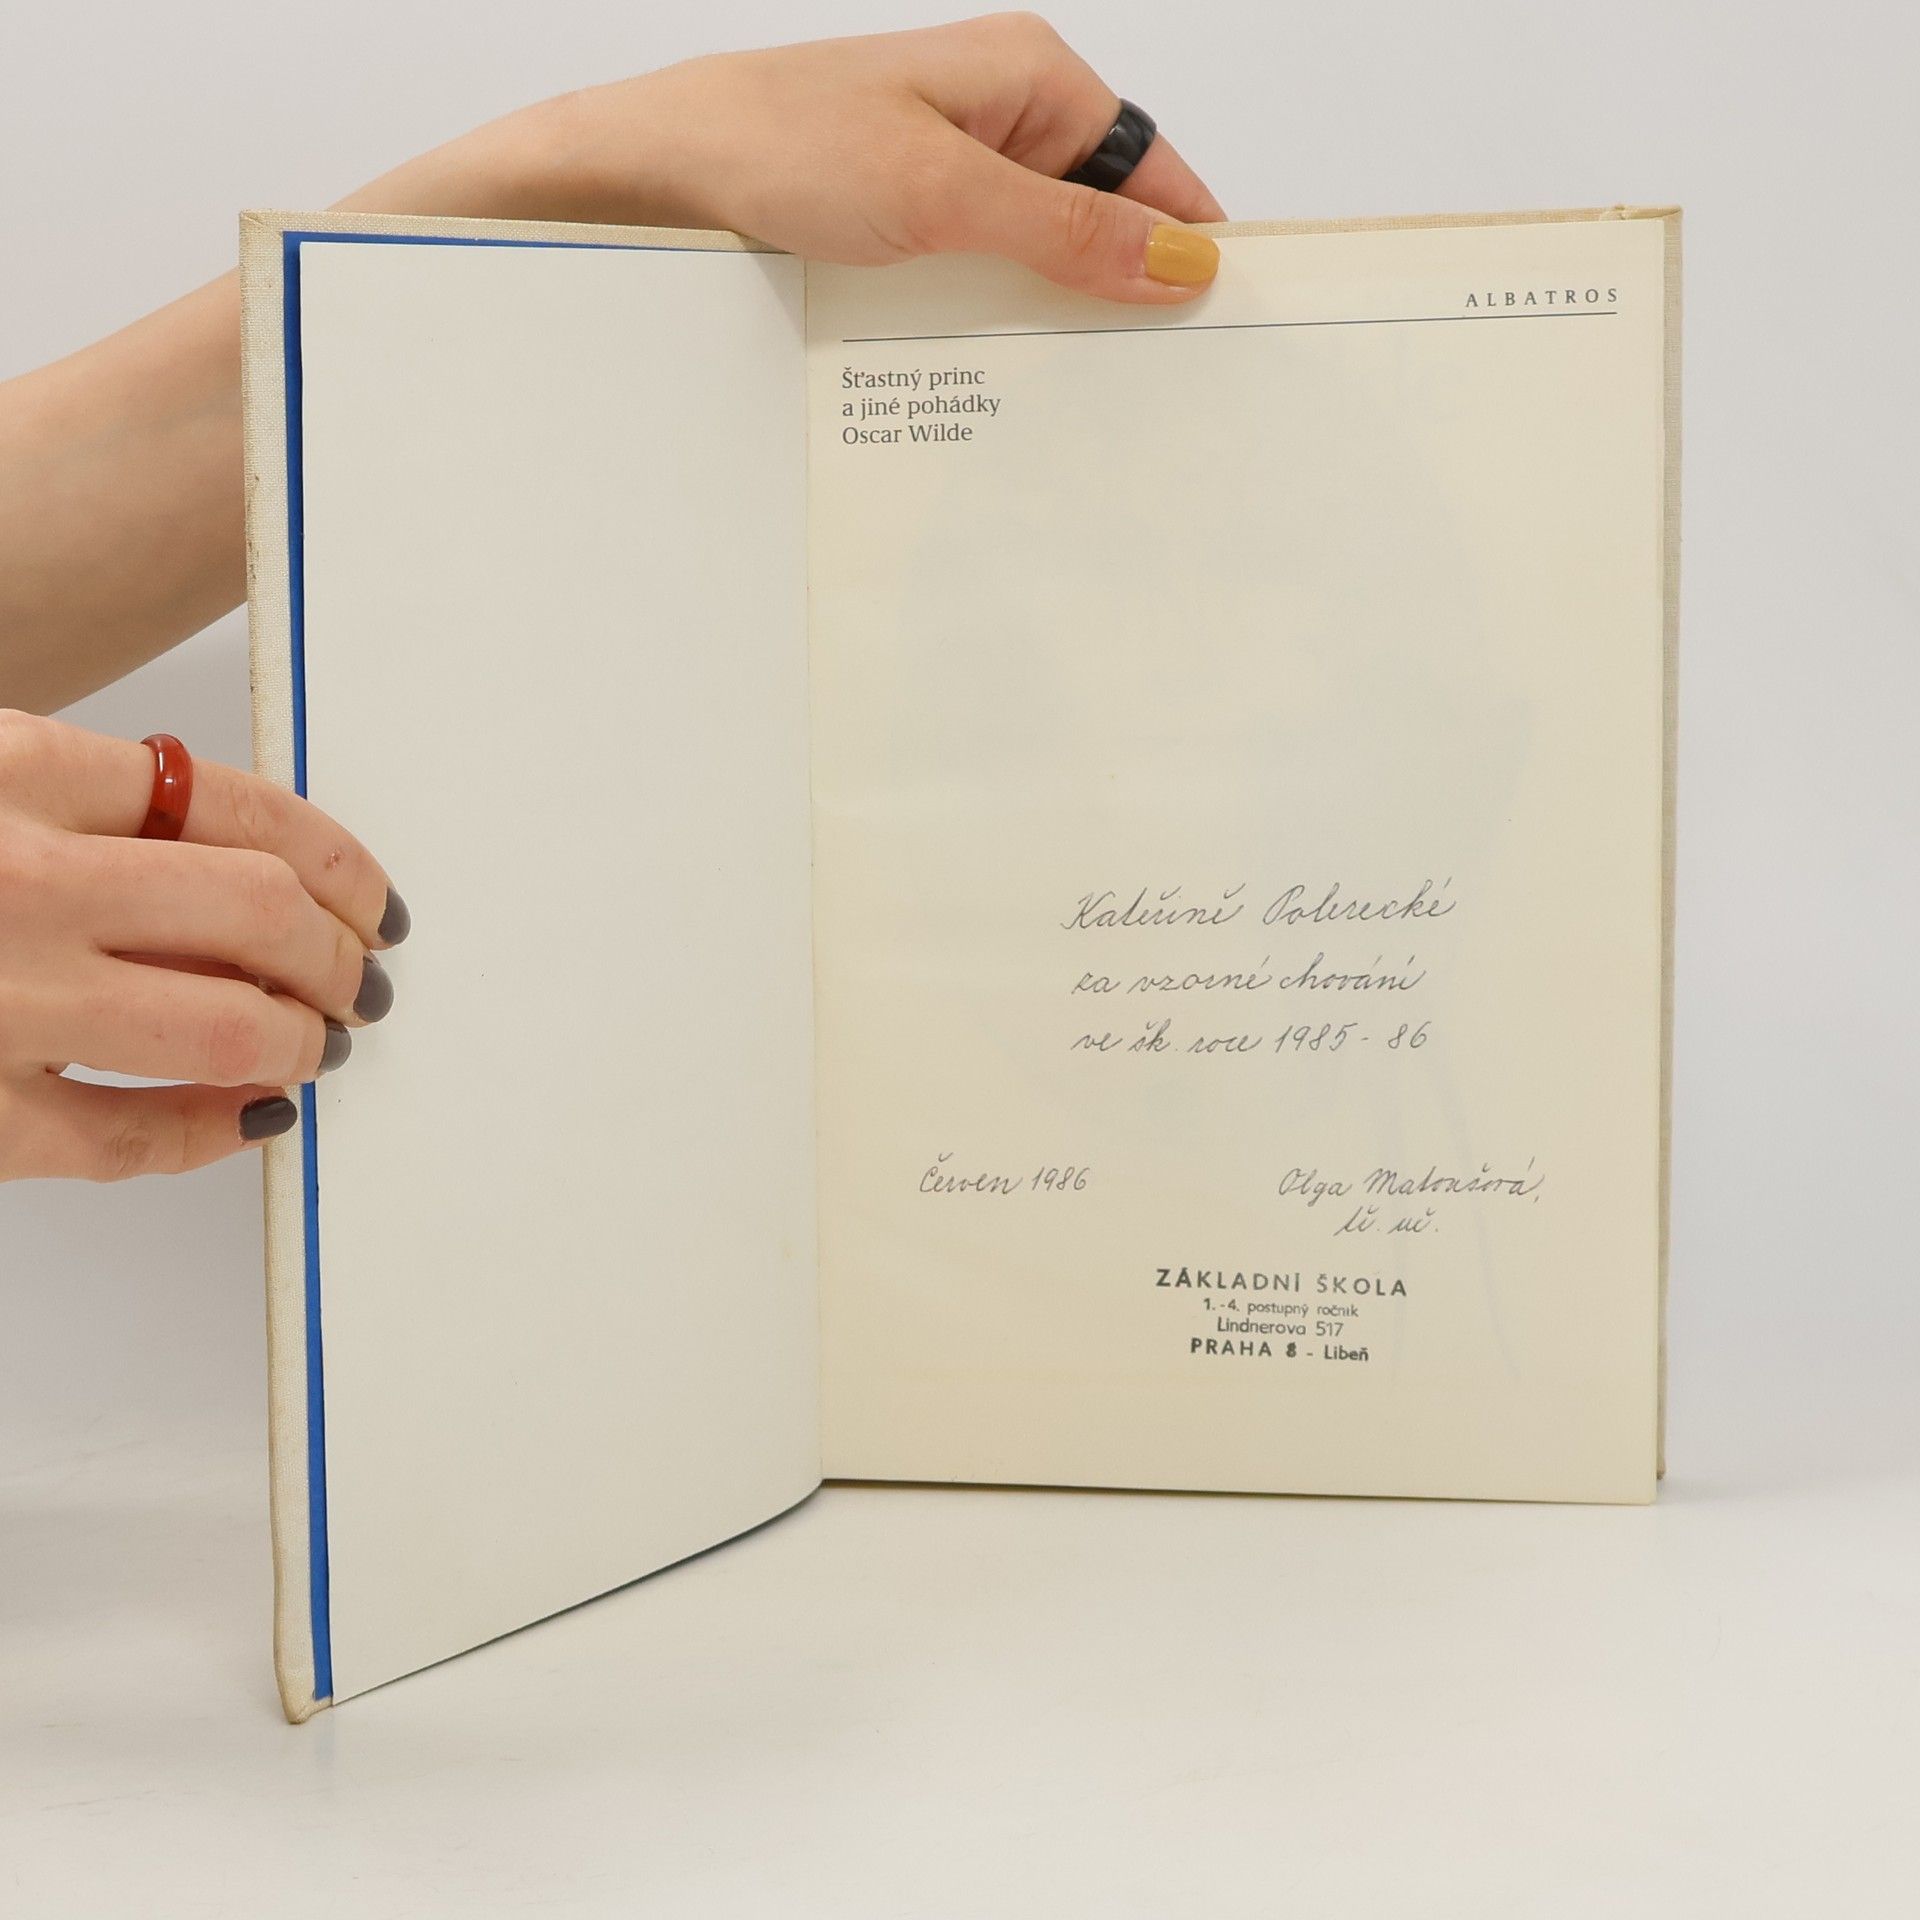 ALBATROS
Šťastný princ
a jiné pohádky
Oscar Wilde
Kateřině Polerecké
za vzorné chování
ve šk. roce 1985 - 86
Červen 1986
Olga Matoušová,
tř. uč.
ZÁKLADNÍ ŠKOLA
1. - 4. postupný ročník
Lindnerova 517
PRAHA 8 - Libeň